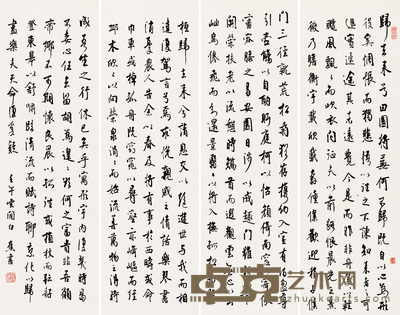 歸去來兮田園將蕪胡不歸既自以心為形
役奚惆悵而獨悲悟已往之不諫知來者之可
追實迷途其未遠覺今是而昨非舟遙遙以輕
颺風飄飄而吹衣問征夫以前路恨晨光之熹
微乃瞻衡宇載欣載奔僮僕歡迎稚子候
門三徑就荒松菊猶存攜幼入室有酒盈樽
引壺觴以自酌眄庭柯以怡顏倚南窗以
寄傲審容膝之易安園日涉以成趣門雖設而常
關策扶老以流憩時矯首而遐觀雲無心以出
岫鳥倦飛而知還景翳翳以將入撫孤松而盤
桓歸去來兮請息交以絕遊世與我而相
遺復駕言兮焉求悅親戚之情話樂琴書以
消憂農人告余以春及將有事於西疇或命
巾車或棹孤舟既窈窕以尋壑亦崎嶇而經
丘木欣欣以向榮泉涓涓而始流善萬物之得時
感吾生之行休已矣乎寓形宇內復幾時曷
不委心任去留胡為遑遑欲何之富貴非吾願
帝鄉不可期懷良辰以孤往或植杖而耘耔
登東皋以舒嘯臨清流而賦詩聊乘化以歸
盡樂夫天命復奚疑 壬午雲間白蕉書